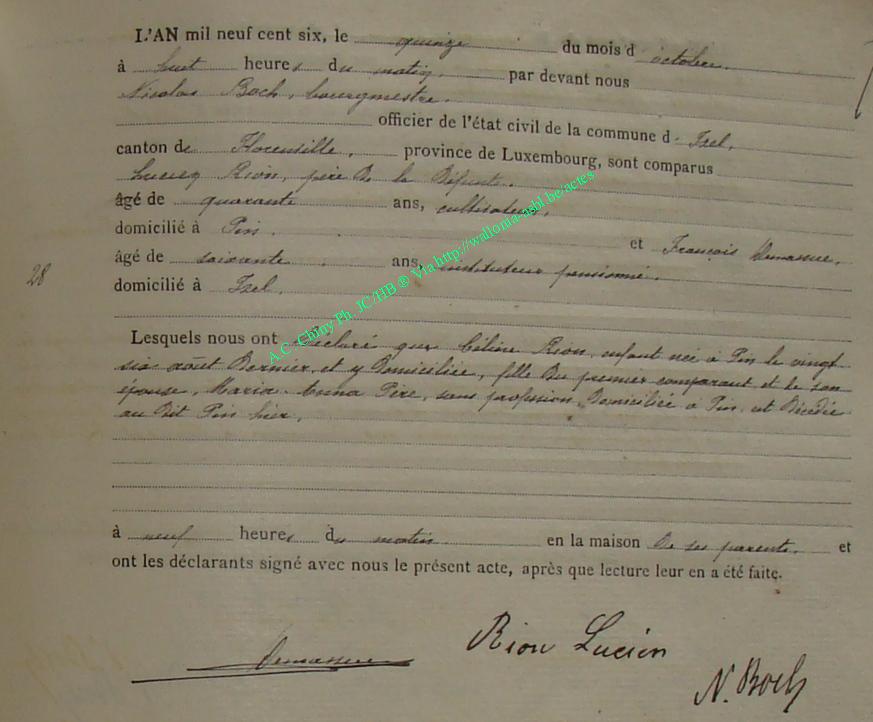 L'AN mil neuf cent six, le quinze du mois d'octobre.
à huit heures du matin, par devant nous
Nicolas Boch, bourgmestre,
officier de l'état civil de la commune d' Izel,
canton de Florenville, province de Luxembourg, sont comparus
Rion, père de la défunte,
âgé de quarante ans, cultivateur,
domicilié à Pin, et François
âgé de soixante ans, instituteur pensionné,
28
domicilié à Izel,
Lesquels nous ont déclaré que Céline Rion, enfant née à Pin le vingt
six août dernier, et y domiciliée, fille du premier comparant et de son
épouse, Maria-Anna Père, sans profession, domiciliée à Pin, est décédée
au dit Pin hier,
à neuf heures du matin en la maison de ses parents. et
ont les déclarants signé avec nous le présent acte, après que lecture leur en a été faite.
Rion Lucien
N. Boch
A.C. Chiny Ph. JC/HB ® Via http://wallonia-asbl.be/actes